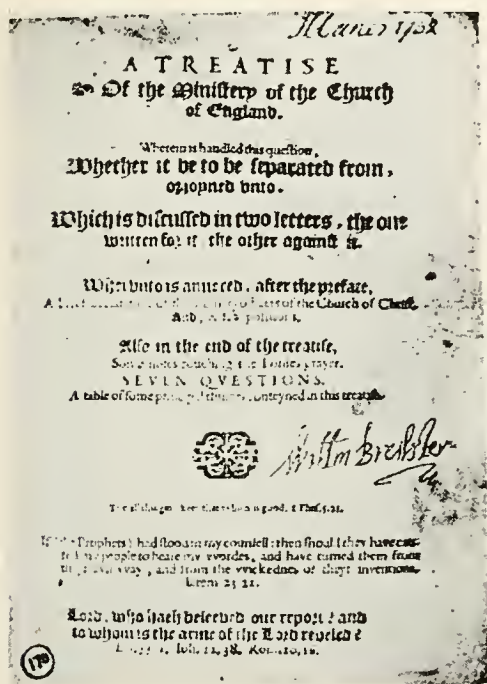 A TREATISE
Of the Ministery of the Church
of England.
Wherein is handled this question,
Whether it be to be separated from,
or joyned vnto.
Which is discussed in two letters, the one
written for it, the other against it.
Wherevnto is annexed, after the preface,
A brief of the Church of Christ.
And,
Also in the end of the treatise,
Some notes touching the Lordes prayer.
SEVEN QVESTIONS.
A table of some principal thinges conteyned in this treatise.
Willm Brewster
good. 1 Thes. 5. 21.
If the Prophets had stood in my counsell: then should they have
people to heare my wordes, and have turned them from
their evil way, and from the wickednes of their inventions.
Ierem 23. 22.
Lord, who hath beleeved our report? and
to whom is the arme of the Lord reveled?
Ioh. 12, 38. Rom. 10, 16.
170